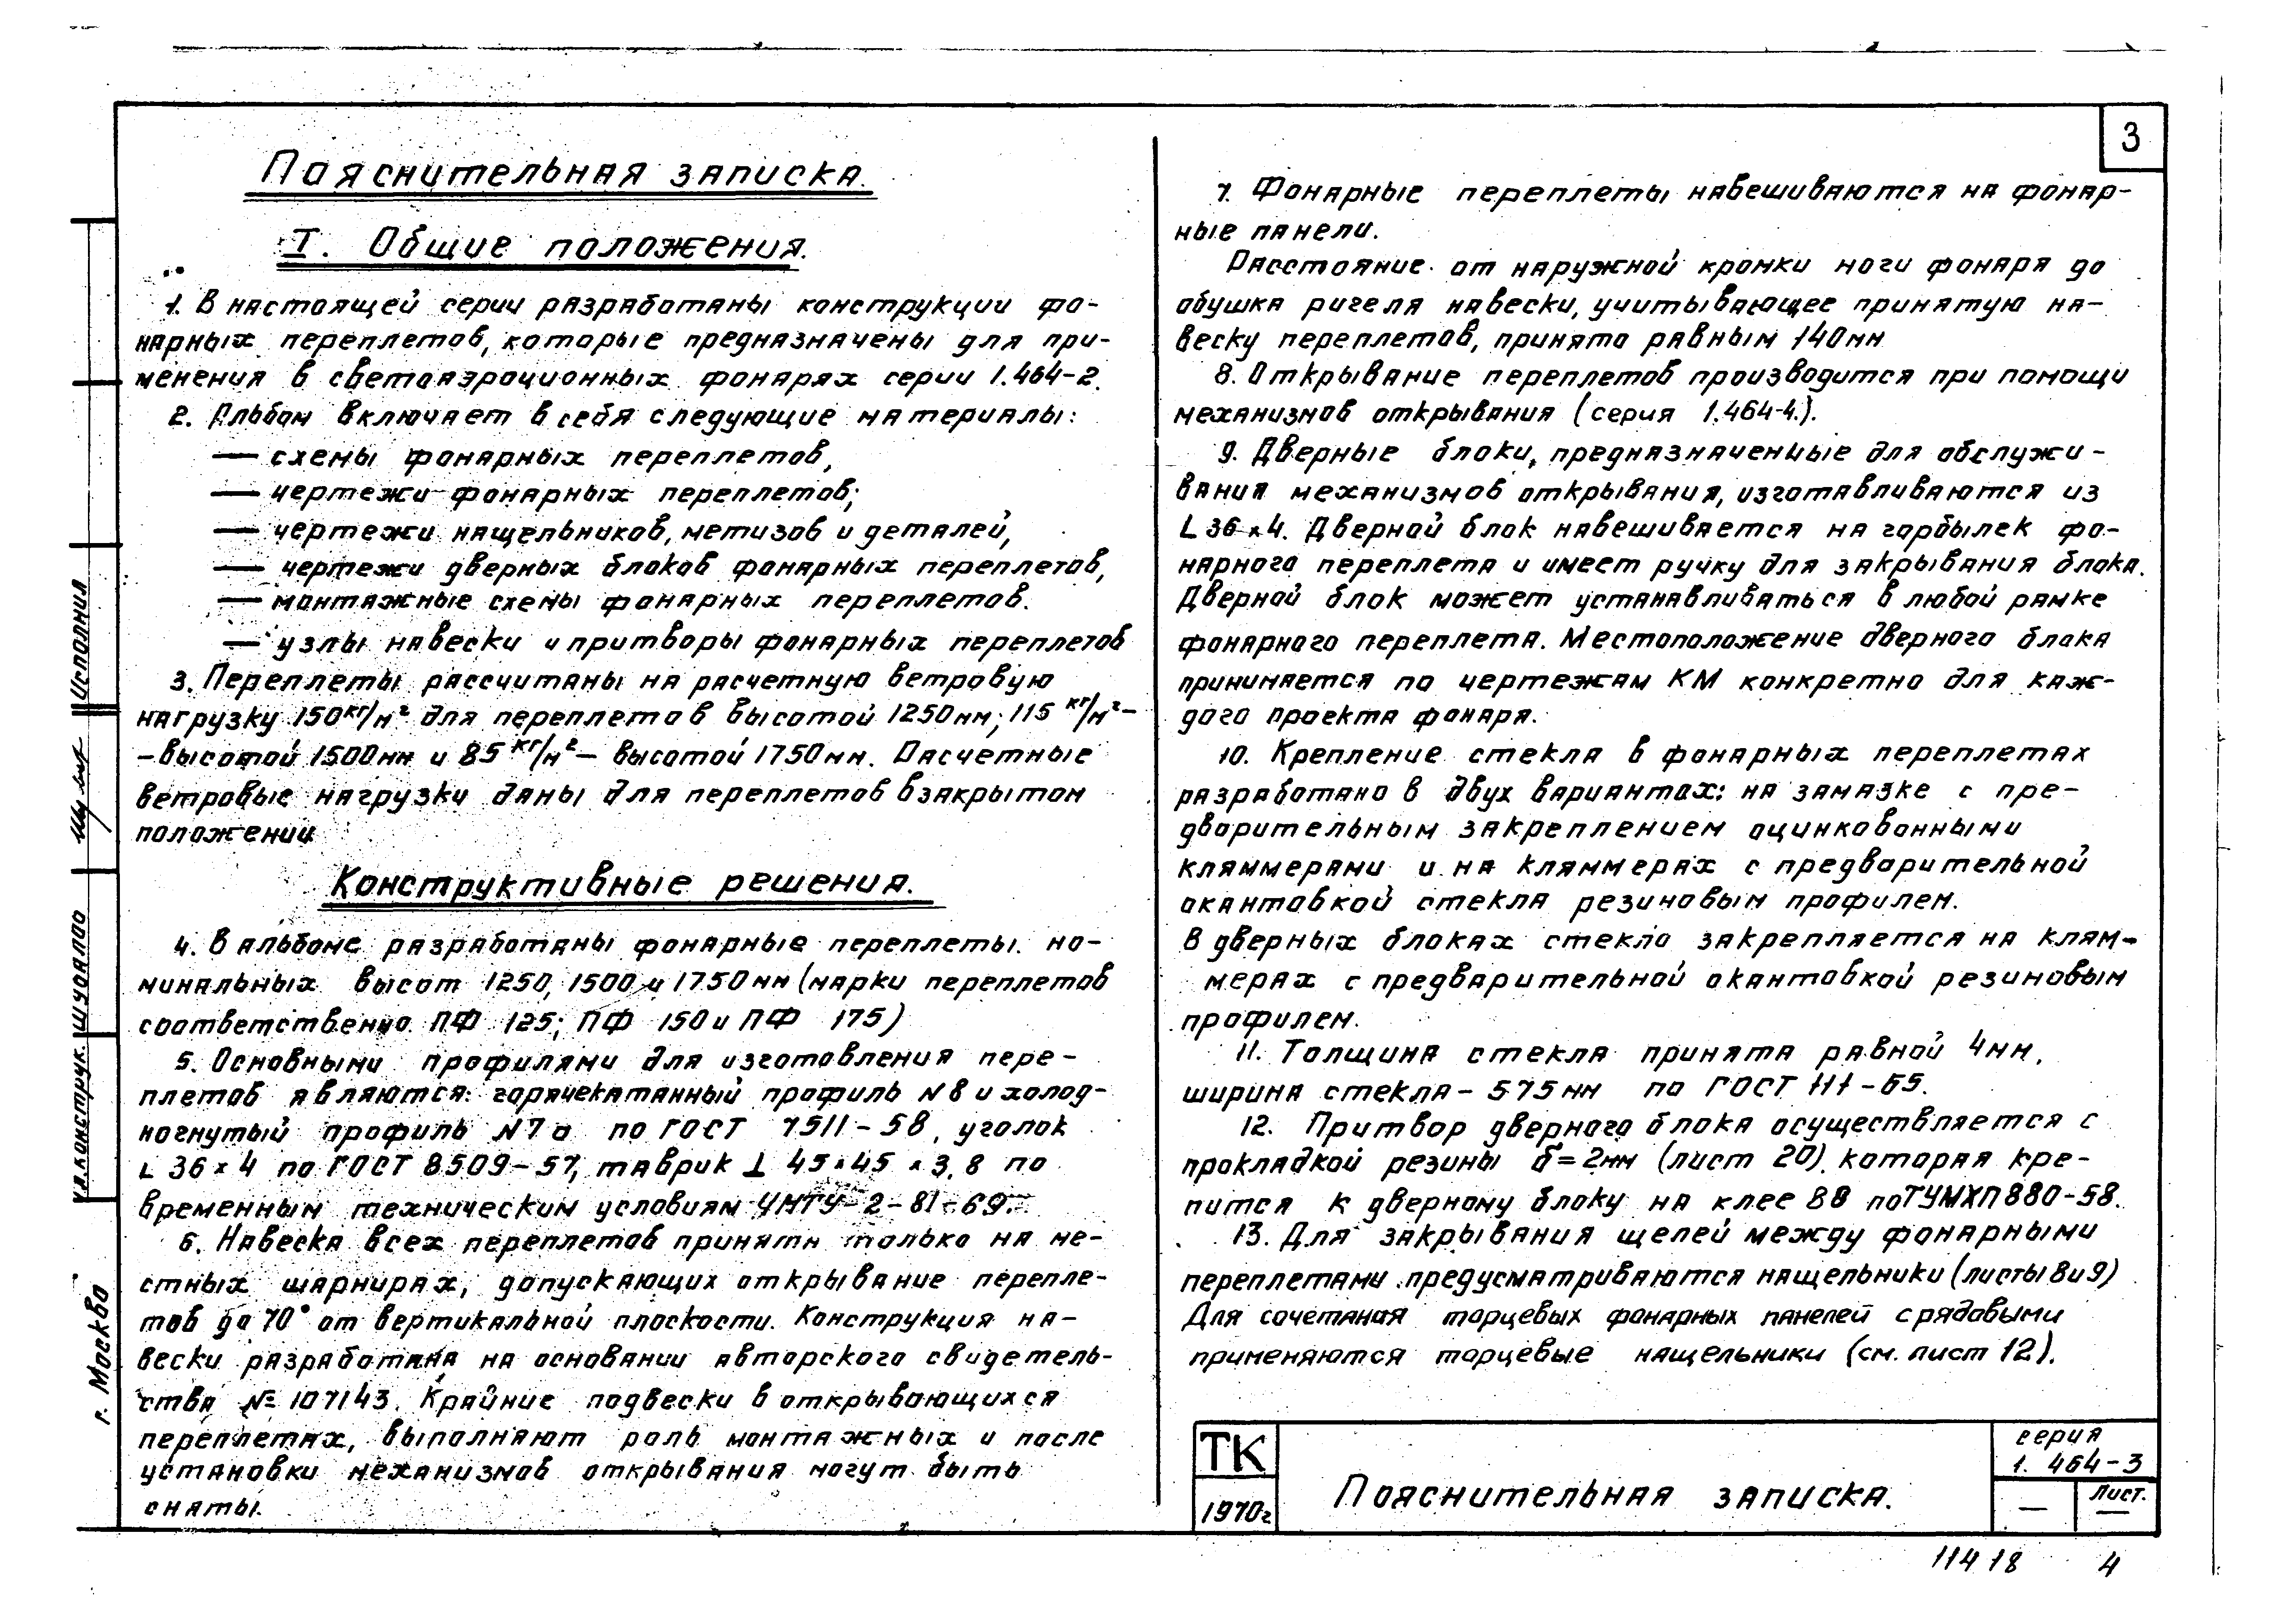 3
Пояснительная записка.
I. Общие положения.
1. В настоящей серии разработаны конструкции фо-
нарных переплетов, которые предназначены для при-
менения в светоаэрационных фонарях серии 1.464-2.
2. Альбом включает в себя следующие материалы:
— схемы фонарных переплетов,
— чертежи фонарных переплетов;
— чертежи нащельников, метизов и деталей,
— чертежи дверных блоков фонарных переплетов,
— монтажные схемы фонарных переплетов.
— узлы навески и притворы фонарных переплетов
3. Переплеты рассчитаны на расчетную ветровую
нагрузку 150 кг/м² для переплетов высотой 1250мм; 115 кг/м² –
– высотой 1500мм и 85 кг/м² – высотой 1750мм. Расчетные
ветровые нагрузки даны для переплетов в закрытом
положении
Конструктивные решения.
4. В альбоме разработаны фонарные переплеты но-
минальных высот 1250, 1500 и 1750мм (марки переплетов
соответственно ПФ 125; ПФ 150 и ПФ 175)
5. Основными профилями для изготовления пере-
плетов являются: горячекатанный профиль N8 и холод-
ногнутый профиль N7а по ГОСТ 7511-58, уголок
L 36×4 по ГОСТ 8509-57, таврик ⊥ 45×45×3,8 по
временным техническим условиям ЧМТУ-2-81-69.
6. Навеска всех переплетов принята только на ме-
стных шарнирах, допускающих открывание перепле-
тов до 70° от вертикальной плоскости. Конструкция на-
вески разработана на основании авторского свидетель-
ства № 107143. Крайние подвески в открывающихся
переплетах, выполняют роль монтажных и после
установки механизмов открывания могут быть
сняты.
7. Фонарные переплеты навешиваются на фонар-
ные панели.
Расстояние от наружной кромки ноги фонаря до
обушка ригеля навески, учитывающее принятую на-
веску переплетов, принято равным 140мм
8. Открывание переплетов производится при помощи
механизмов открывания (серия 1.464-4.).
9. Дверные блоки, предназначенные для обслужи-
вания механизмов открывания, изготавливаются из
L 36×4. Дверной блок навешивается на горбылек фо-
нарного переплета и имеет ручку для закрывания блока.
Дверной блок может устанавливаться в любой рамке
фонарного переплета. Местоположение дверного блока
принимается по чертежам КМ конкретно для каж-
дого проекта фонаря.
10. Крепление стекла в фонарных переплетах
разработано в двух вариантах: на замазке с пре-
дварительным закреплением оцинкованными
кляммерами и на кляммерах с предварительной
окантовкой стекла резиновым профилем.
В дверных блоках стекло закрепляется на клям-
мерах с предварительной окантовкой резиновым
профилем.
11. Толщина стекла принята равной 4мм,
ширина стекла – 575мм по ГОСТ 111-65.
12. Притвор дверного блока осуществляется с
прокладкой резины δ=2мм (лист 20), которая кре-
пится к дверному блоку на клее 88 по ТУМХП 880-58.
13. Для закрывания щелей между фонарными
переплетами предусматриваются нащельники (листы 8 и 9)
Для сочетания торцевых фонарных панелей с рядовыми
применяются торцевые нащельники (см. лист 12).
ТК
1970г
Пояснительная записка.
серия
1.464-3
Лист.
—
—
11418 4
Исполнил
Гл.конструк. Шувалов
г. Москва